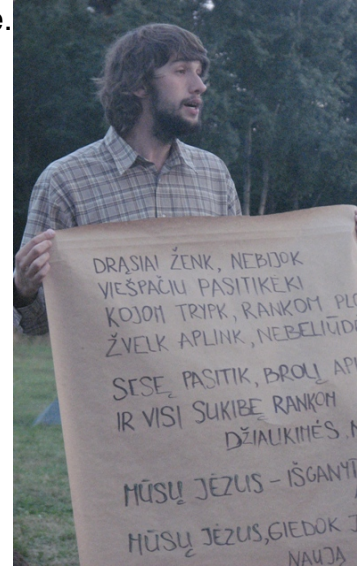 e.
DRĄSIAI ŽENK, NEBIJOK
VIEŠPAČIU PASITIKĖKI
KOJOM TRYPK, RANKOM PLO
ŽVELK APLINK, NEBELIŪDĖ
SESĘ PASITIK, BROLĮ API
IR VISI SUKIBĘ RANKOM
DŽIAUKIMĖS.
MŪSŲ JĖZUS - IŠGANYT
MŪSŲ JĖZUS, GIEDOK J
NAUJĄ